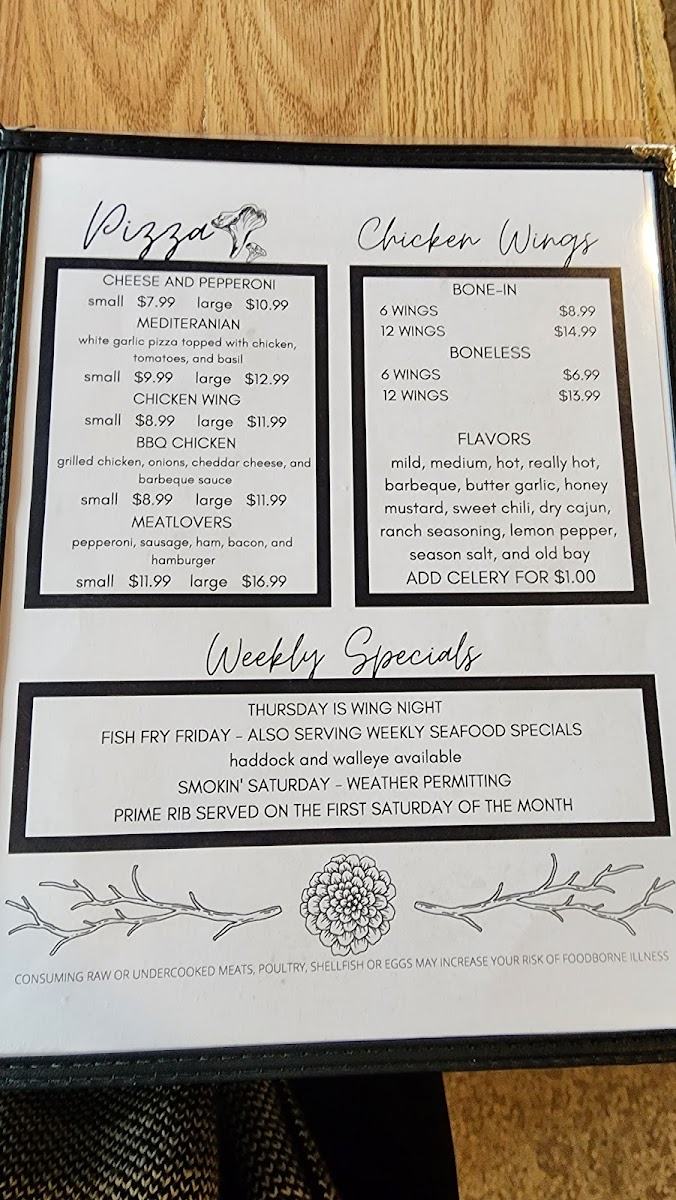 Pizza
CHEESE AND PEPPERONI
small $7.99 large $10.99
MEDITERANIAN
white garlic pizza topped with chicken,
tomatoes, and basil
small $9.99 large $12.99
CHICKEN WING
small $8.99 large $11.99
BBQ CHICKEN
grilled chicken, onions, cheddar cheese, and
barbeque sauce
small $8.99 large $11.99
MEATLOVERS
pepperoni, sausage, ham, bacon, and
hamburger
small $11.99 large $16.99
Chicken Wings
BONE-IN
6 WINGS $8.99
12 WINGS $14.99
BONELESS
6 WINGS $6.99
12 WINGS $13.99
FLAVORS
mild, medium, hot, really hot,
barbeque, butter garlic, honey
mustard, sweet chili, dry cajun,
ranch seasoning, lemon pepper,
season salt, and old bay
ADD CELERY FOR $1.00
Weekly Specials
THURSDAY IS WING NIGHT
FISH FRY FRIDAY - ALSO SERVING WEEKLY SEAFOOD SPECIALS
haddock and walleye available
SMOKIN' SATURDAY - WEATHER PERMITTING
PRIME RIB SERVED ON THE FIRST SATURDAY OF THE MONTH
CONSUMING RAW OR UNDERCOOKED MEATS, POULTRY, SHELLFISH OR EGGS MAY INCREASE YOUR RISK OF FOODBORNE ILLNESS